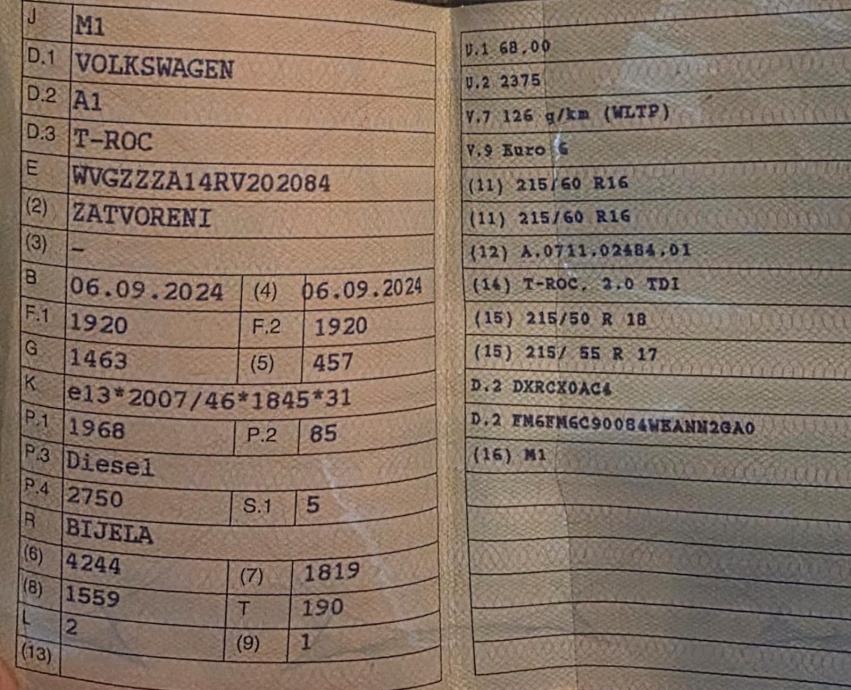 J M1
D.1 VOLKSWAGEN
D.2 A1
D.3 T-ROC
E WVGZZZA14RV202084
(2) ZATVORENI
(3) –
B 06.09.2024 (4) 06.09.2024
F.1 1920 F.2 1920
G 1463 (5) 457
K e13*2007/46*1845*31
P.1 1968 P.2 85
P.3 Diesel
P.4 2750 S.1 5
R BIJELA
(6) 4244 (7) 1819
(8) 1559 T 190
L 2 (9) 1
(13)
U.1 68,00
U.2 2375
V.7 126 g/km (WLTP)
V.9 Euro 6
(11) 215/60 R16
(11) 215/60 R16
(12) A.0711.02484.01
(14) T-ROC, 2.0 TDI
(15) 215/50 R 18
(15) 215/ 55 R 17
D.2 DXRCX0AC4
D.2 FM6FM6C90084WKANN2GA0
(16) M1